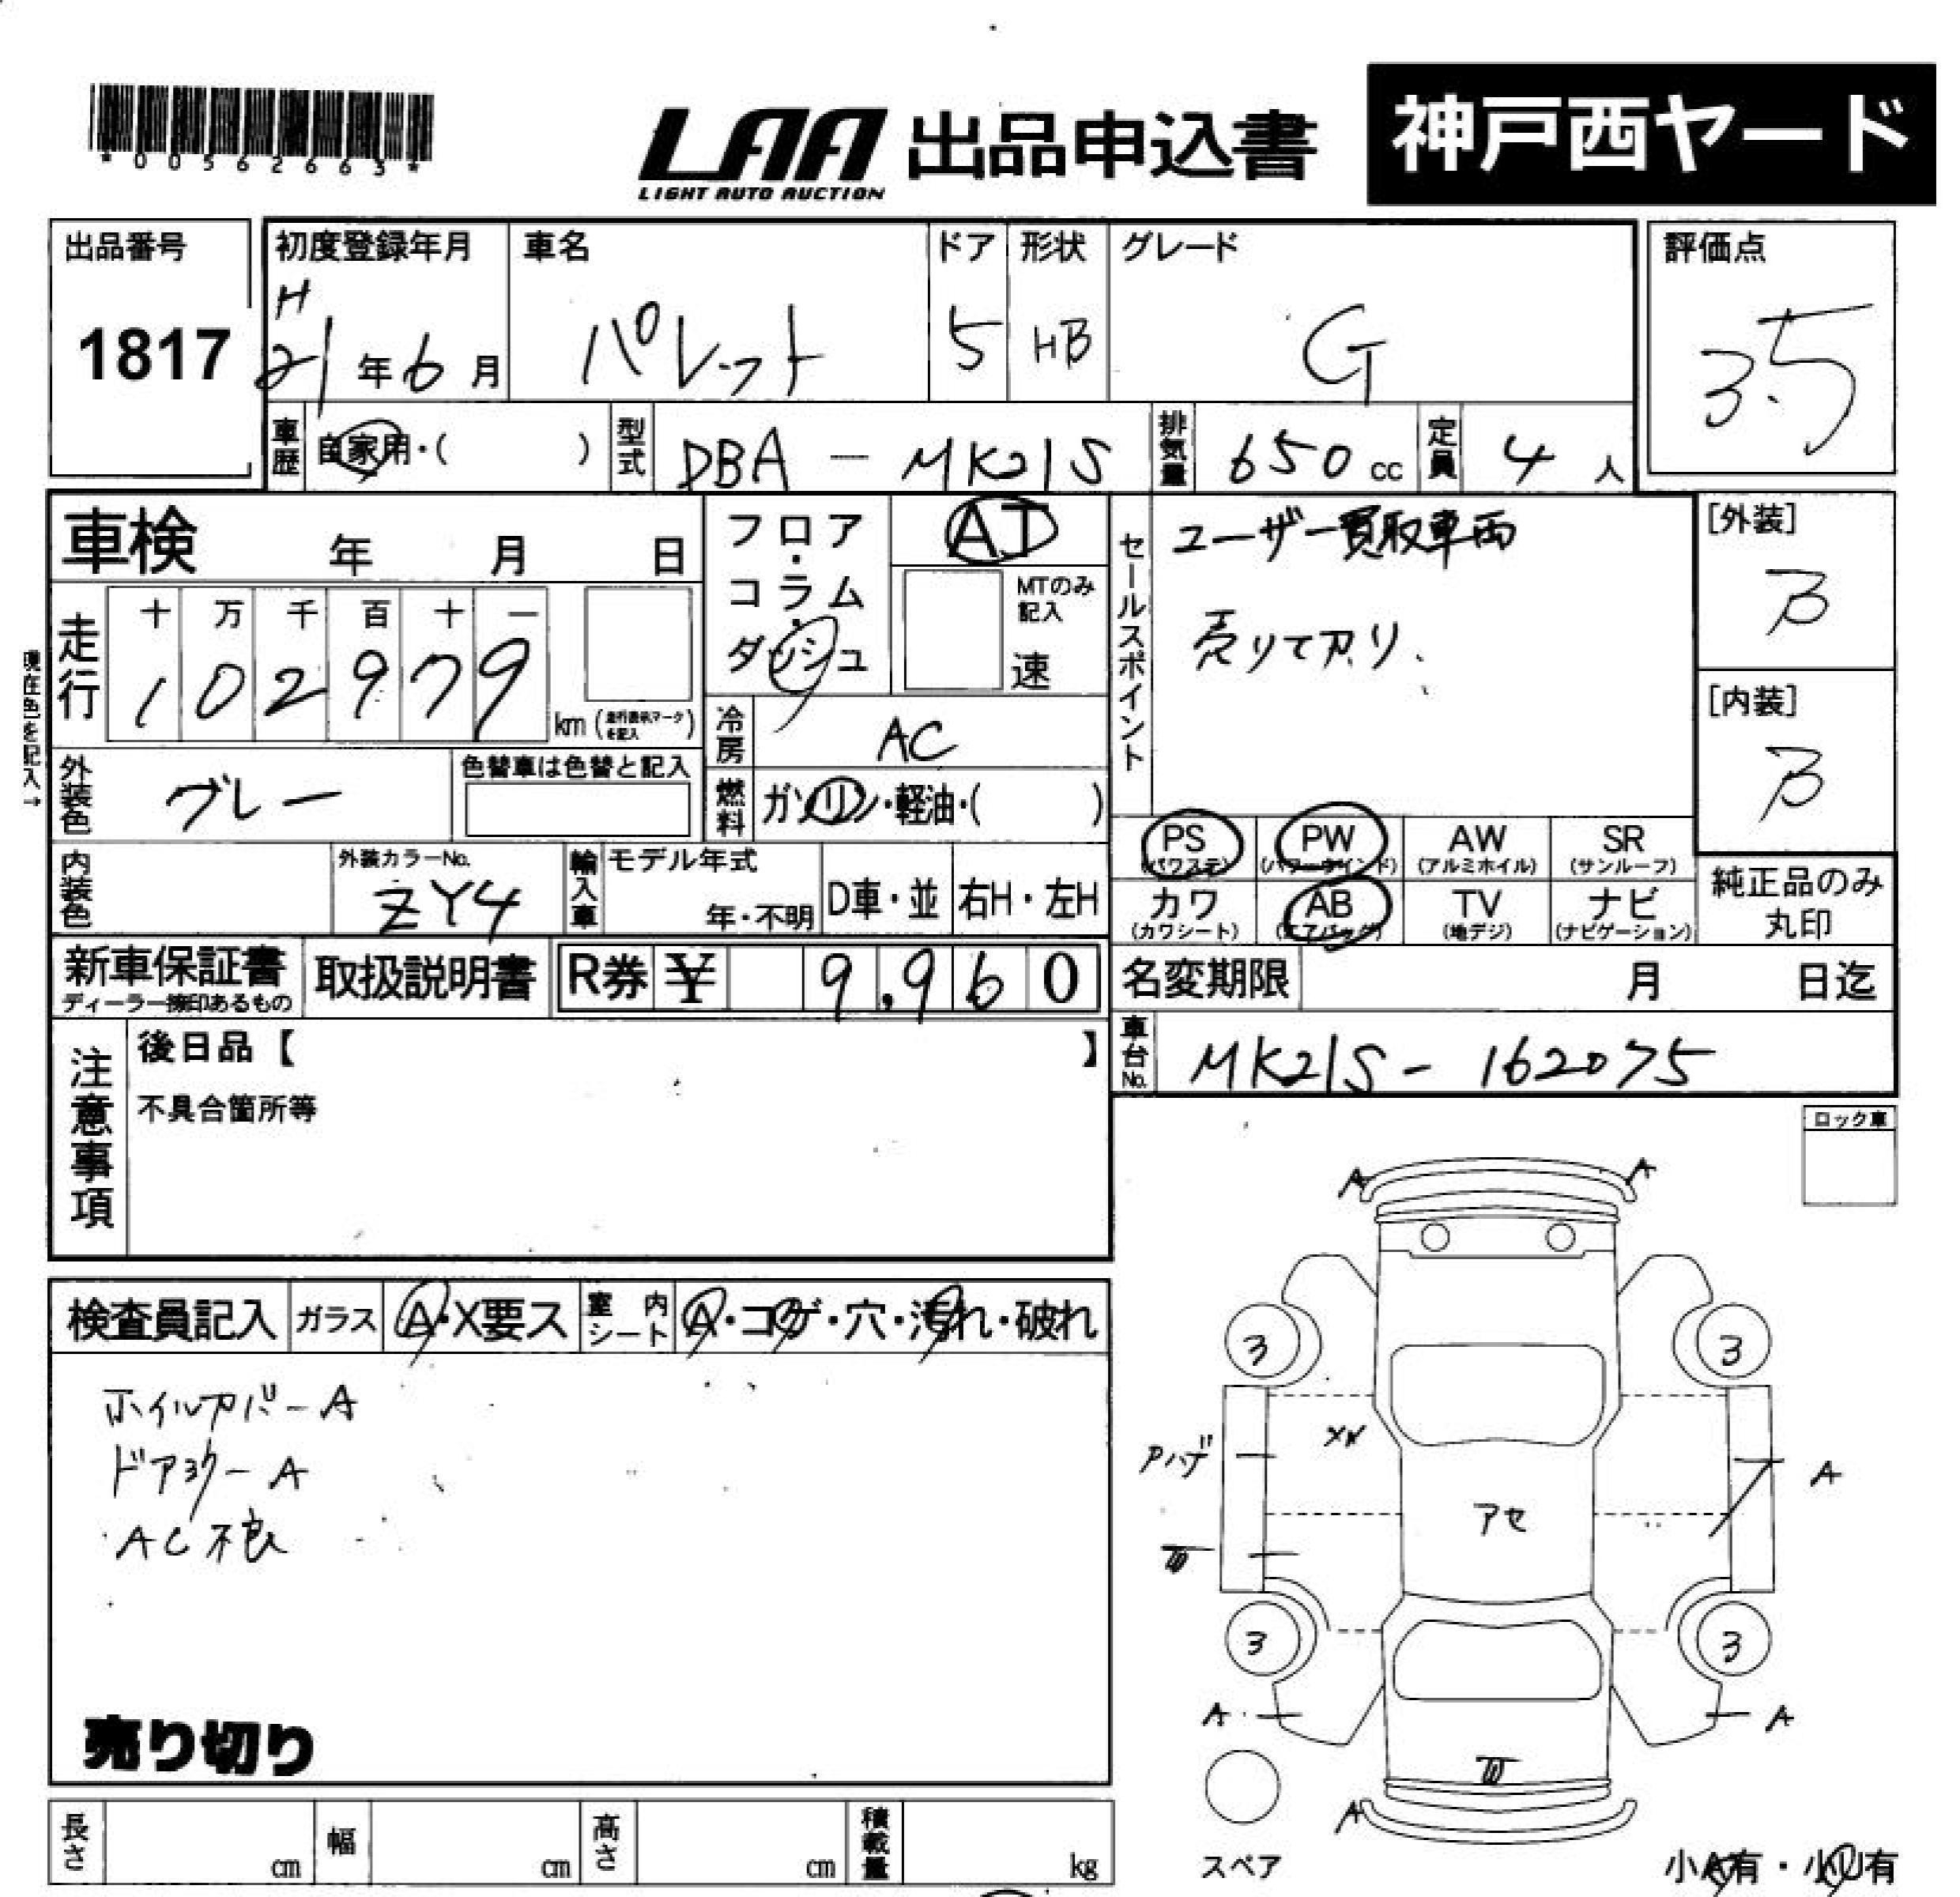 *00562663*
LAA 出品申込書 神戸西ヤード
LIGHT AUTO AUCTION
出品番号 初度登録年月 車名 ドア 形状 グレード 評価点
1817 H21年6月 パレット 5 HB G 3.5
車歴 自家用・( ) 型式 DBA - MK21S 排気量 650cc 定員 4人
車検 年 月 日
フロア・コラム・ダッシュ AT
MTのみ記入 速
セールスポイント ユーザー買取車両
売りてアリ、
[外装] B
[内装] B
走行 十 万 千 百 十 一
1 0 2 9 7 9 km (走行表示マークを記入)
現在色を記入→
冷房 AC
外装色 グレー 色替車は色替と記入
燃料 ガソリン・軽油・( )
PS (パワステ) PW (パワーウインド) AW (アルミホイル) SR (サンルーフ)
カワ (カワシート) AB (エアバッグ) TV (地デジ) ナビ (ナビゲーション)
純正品のみ丸印
内装色 外装カラーNo. ZY4 輸入車 モデル年式 年・不明 D車・並 右H・左H
新車保証書 ディーラー捺印あるもの 取扱説明書 R券 ¥ 9,960
名変期限 月 日迄
車台No. MK21S - 162075
注意事項 後日品【 】
不具合箇所等
ロック車
検査員記入 ガラス A・X要ス 室内シート A・コゲ・穴・汚れ・破れ
ホイルカバーA
ドアミラーA
AC不良
売り切り
A A
3 3
Pハゲ A
アセ
3 3
A A
A
スペア
小A有・小U有
長さ cm 幅 cm 高さ cm 積載量 kg